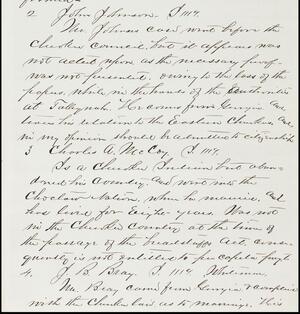 2 John Johnson. $ 111 4/.
Mr. Johnsons case went before the
Cherokee Council, but it appears was
not acted upon as the necessary proof
was not presented, owing to the loss of the
papers, while in the hands of the Authorities
at Tahlequah. He comes from Georgia and
traces his relation to the Eastern Cherokees, and
in my opinion should be admitted to citizenship
3 Charles A. McCoy $ 111 4/.
Is a Cherokee Indian but aban-
doned his Country and went into the
Choctaw Nation, when he married. and
has lived for Eight years. Was not
in the Cherokee Country at the time of
the passage of the Act, conse-
quently is not entitled to per capita
4. J. B. Bray. $ 111 4/.
Mr. Bray came from Georgia &
with the Cherokee laws as to marriage. His